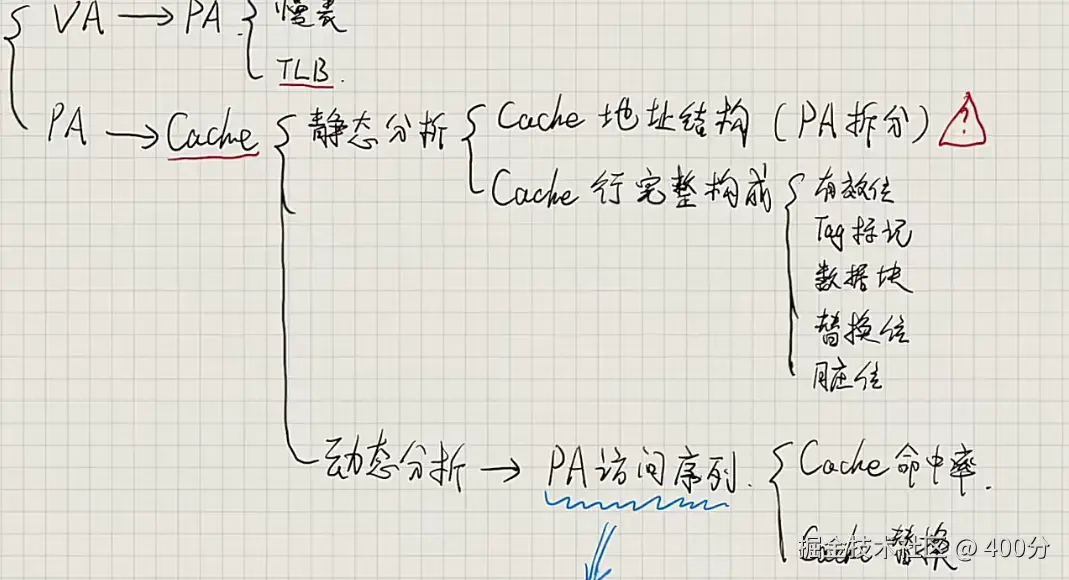 VA → PA 慢表
TLB.
PA → Cache 静态分析 Cache 地址结构 (PA拆分) ?
Cache 行完整构成 有效位
Tag标记
数据块
替换位
脏位
动态分析 → PA访问序列. Cache 命中率.
Cache 替换
掘金技术社区 @ 400分